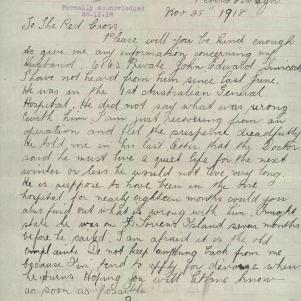 Formally acknowledged
26.11.18
Nov 25th 1918
To The Red Cross.
Please will you be kind enough
to give me any information concerning my
Husband. 6863 Private John Edward
I have not heard from him since last June.
He was in the 1st Australian General
Hospital. He did not say what was wrong
with him I am just Recovering from an
operation and felt the suspense dreadfully
He told me in his last letter that the Doctor
said he must live a quiet life for the next
winter or less he would not live very long
He is suppose to have been in the one
hospital for nearly eighteen months could you
also find out what is wrong with him. I might
state he was on Torrens Island seven months
before he sailed. I am afraid it is the old
complaint. Do not keep anything back from me
because I'm to apply for divorce when
he returns Hoping you will let me know
as soon as possible